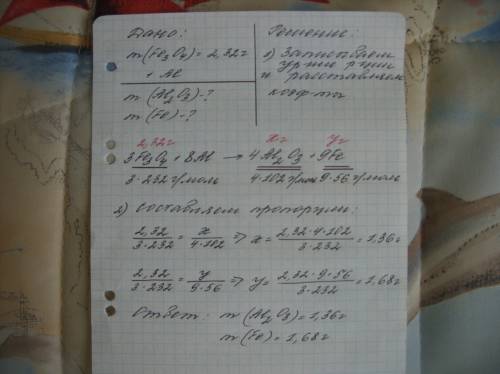 Дано:
m(Fe3O4) = 2,32г
+ Al
m(Al2O3)-?
m(Fe)-?
Решение:
1) Записываем
ур-ние р-ции
и расставляем
коэф-ты
2,32г xг yг
3Fe3O4 + 8Al → 4Al2O3 + 9Fe
3·232 г/моль 4·102 г/моль 9·56 г/моль
2) Составляем пропорции:
2,32/3·232 = x/4·102 ⇒ x = 2,32·4·102/3·232 = 1,36г
2,32/3·232 = y/9·56 ⇒ y = 2,32·9·56/3·232 = 1,68г
Ответ: m(Al2O3) = 1,36г
m(Fe) = 1,68г